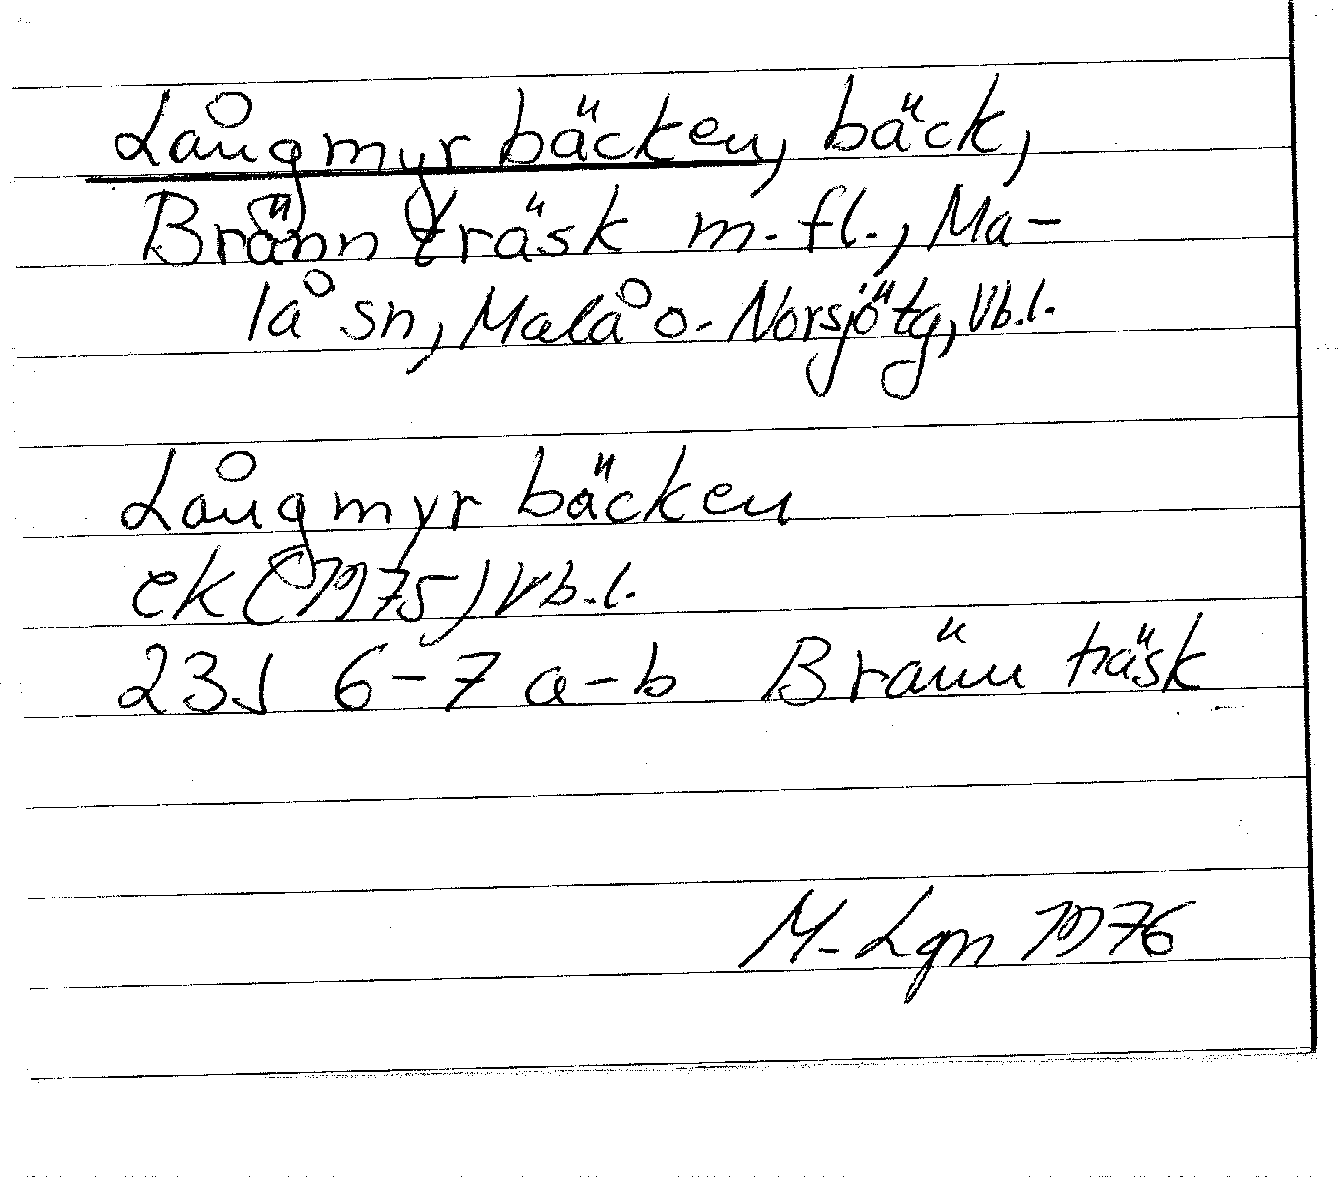 Långmyrbäcken, bäck,
Brännträsk m.fl., Ma-
lå sn, Malå o. Norsjö tg, Vb.l.
Långmyrbäcken
ek (1975) Vb.l.
23J 6-7 a-b Brännträsk
M. Lgn 1976